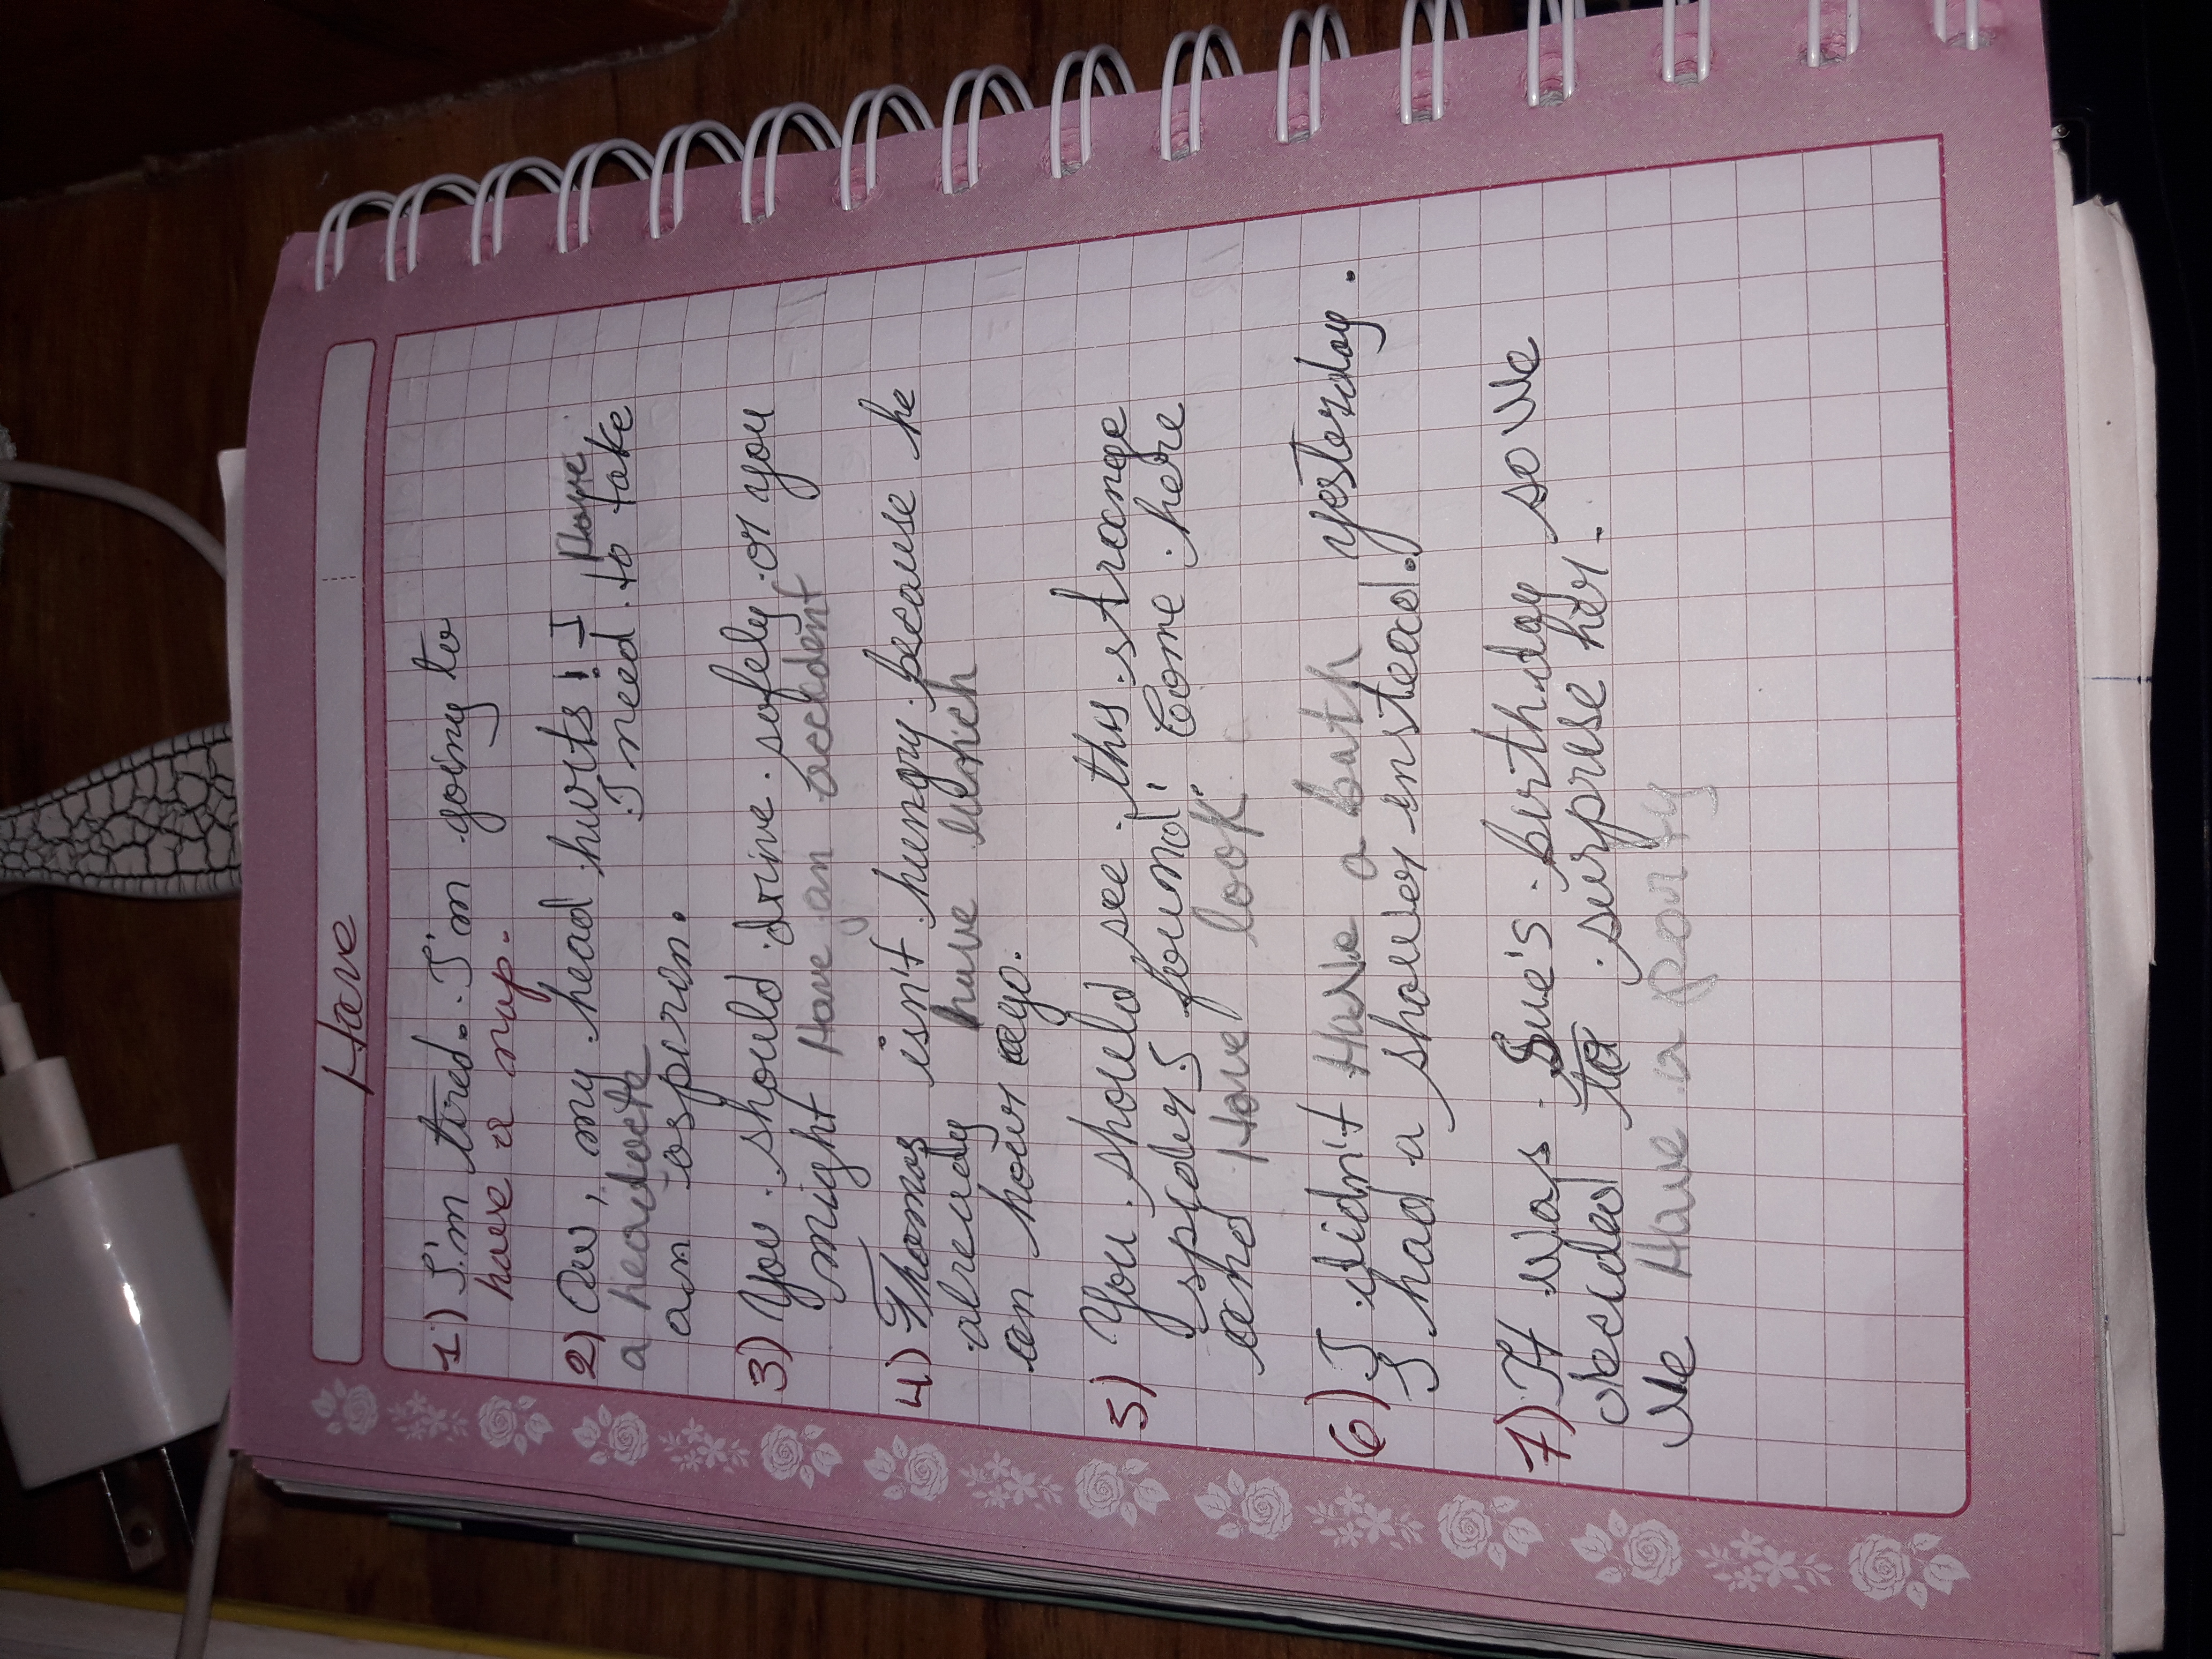 Have
1) I'm tired. I'm going to
have a nap.
2) Ow, my head hurts! I have
a headache I need to take
an aspirin.
3) You should drive safely or you
might Have an accident
4) Thomas isn't hungry because he
already have lunch
an hour ago.
5) You should see this strange
spider I found! Come here
and Have look.
6) I didn't Have a bath yesterday.
I had a shower instead.
7) It was Sue's birthday so We
decided to surprise her.
We Have a party